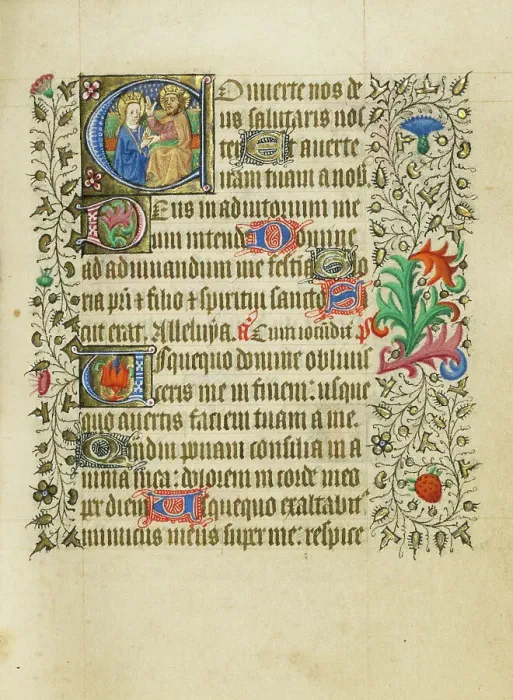 Conuerte nos de
us salutaris nos
ter Et auerte
iram tuam a nob
Deus in adiutorium me
um intende Domine
ad adiuuandum me festina Glo
ria pri & filio & spiritui sancto S
icut erat. Alleluya. a Cum iocūdit. p̄
Usquequo domine obliuis
ceris me in finem: usque
quo auertis faciem tuam a me.
Quamdiu ponam consilia in a
nima mea: dolorem in corde meo
per diem Usquequo exaltabit
inimicus meus super me: respice